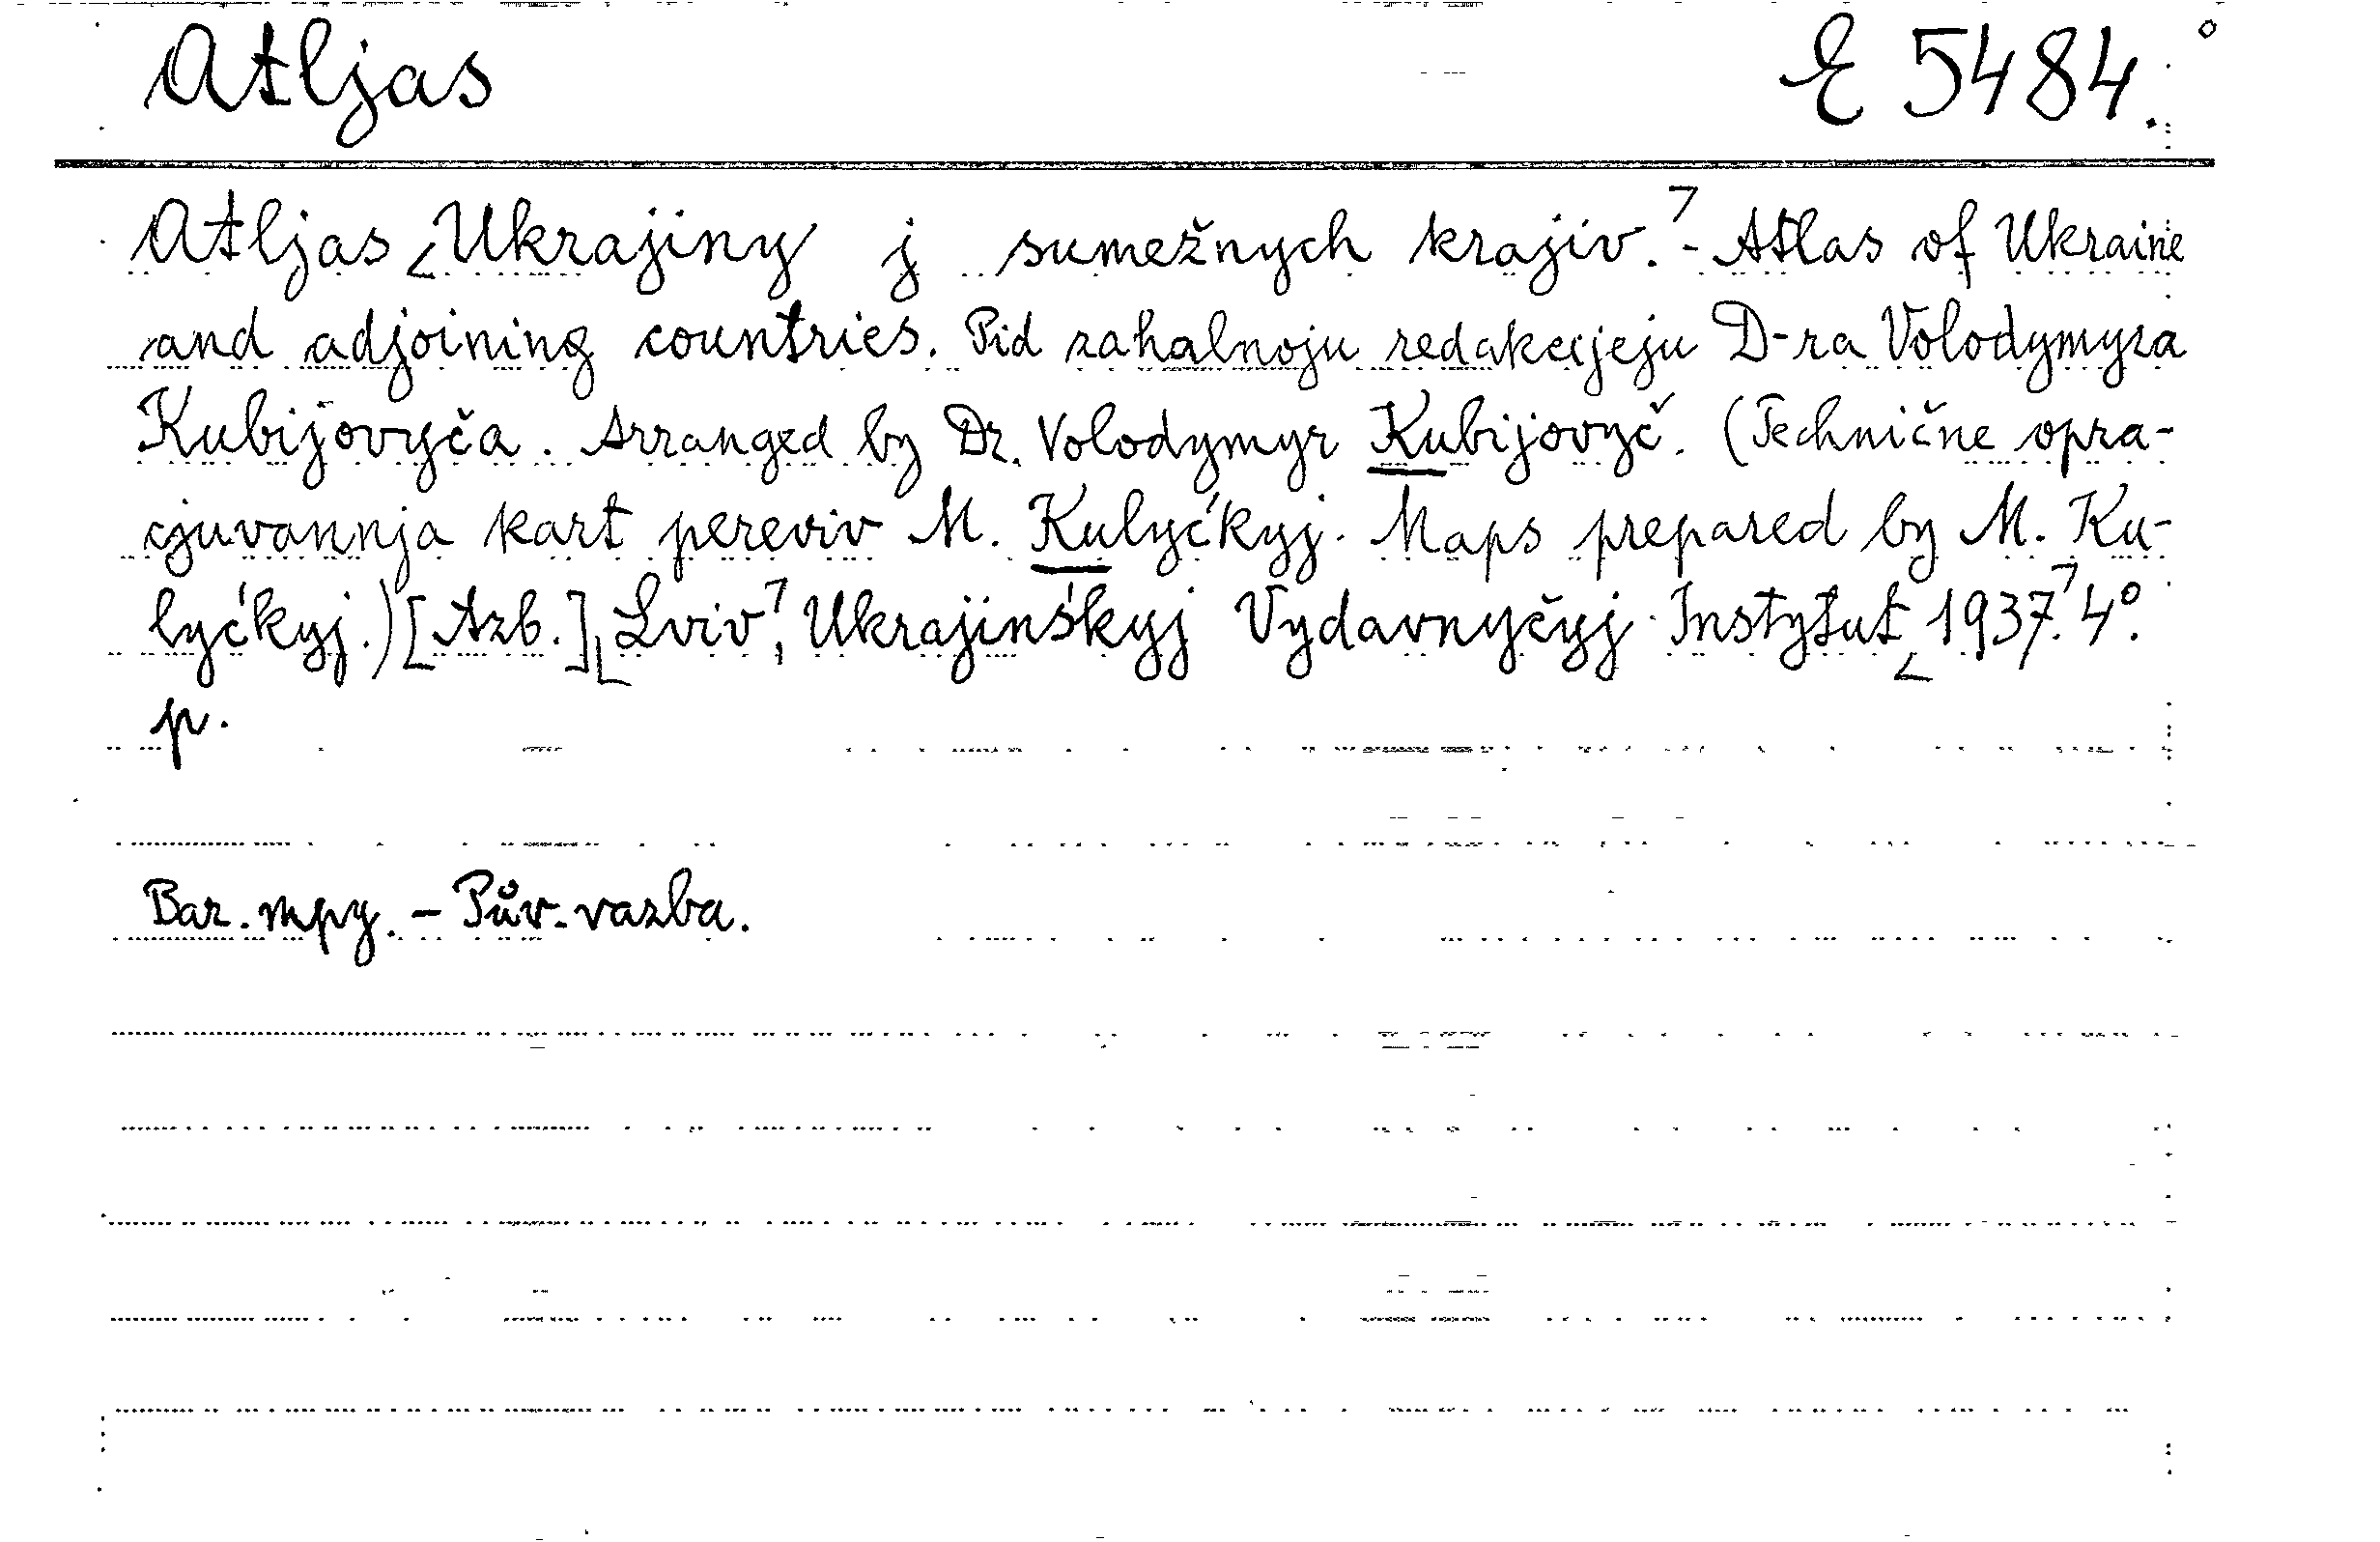 Atljas E 5484.
Atljas Ukrajiny j sumežnych krajiv. - Atlas of Ukraine
and adjoining countries. Pid zahalnoju redakcijeju D-ra Volodymyra
Kubijovyča. Arranged by Dr. Volodymyr Kubijovyč. (Technične opra-
cjuvannja kart pereviv M. Kulyćkyj. Maps prepared by M. Ku-
lyćkyj.) [Azb.] Lviv, Ukrajinśkyj Vydavnyčyj Instytut 1937. 4°.
p.
Bar. mpy. - Pův. vazba.